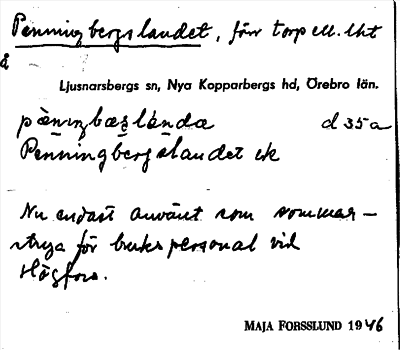 Penningbergslandet, förr torp ell. lht
å
Ljusnarsbergs sn, Nya Kopparbergs hd, Örebro län.
pæ̀niŋbæşlándə d 35 a
Penningbergslandet ek
Nu endast använt som sommar-
stuga för brukspersonal vid
Högfors.
MAJA FORSSLUND 1946